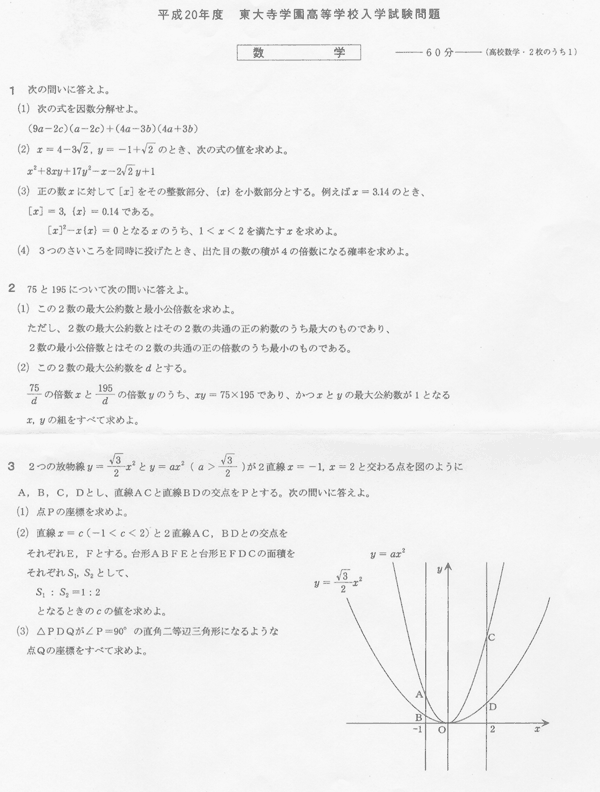 平成20年度 東大寺学園高等学校入学試験問題
数 学 ――60分――(高校数学・2枚のうち1)
1 次の問いに答えよ。
(1) 次の式を因数分解せよ。
(9a−2c)(a−2c)+(4a−3b)(4a+3b)
(2) x = 4−3√2, y = −1+√2 のとき、次の式の値を求めよ。
x²+8xy+17y²−x−2√2y+1
(3) 正の数 x に対して [x] をその整数部分、{x} を小数部分とする。例えば x = 3.14 のとき、
[x] = 3, {x} = 0.14 である。
[x]²−x{x} = 0 となる x のうち、1 < x < 2 を満たす x を求めよ。
(4) 3つのさいころを同時に投げたとき、出た目の数の積が4の倍数になる確率を求めよ。
2 75 と 195 について次の問いに答えよ。
(1) この2数の最大公約数と最小公倍数を求めよ。
ただし、2数の最大公約数とはその2数の共通の正の約数のうち最大のものであり、
2数の最小公倍数とはその2数の共通の正の倍数のうち最小のものである。
(2) この2数の最大公約数を d とする。
75/d の倍数 x と 195/d の倍数 y のうち、xy = 75×195 であり、かつ x と y の最大公約数が 1 となる
x, y の組をすべて求めよ。
3 2つの放物線 y = √3/2 x² と y = ax² ( a > √3/2 ) が2直線 x = −1, x = 2 と交わる点を図のように
A, B, C, Dとし、直線ACと直線BDの交点をPとする。次の問いに答えよ。
(1) 点Pの座標を求めよ。
(2) 直線 x = c (−1 < c < 2) と2直線AC, BDとの交点を
それぞれE, Fとする。台形ABFEと台形EFDCの面積を
それぞれ S₁, S₂ として、
S₁ : S₂ = 1 : 2
となるときの c の値を求めよ。
(3) △PDQが∠P=90° の直角二等辺三角形になるような
点Qの座標をすべて求めよ。
y = ax²
y
y = √3/2 x²
C
A
D
B
−1
O
2
x